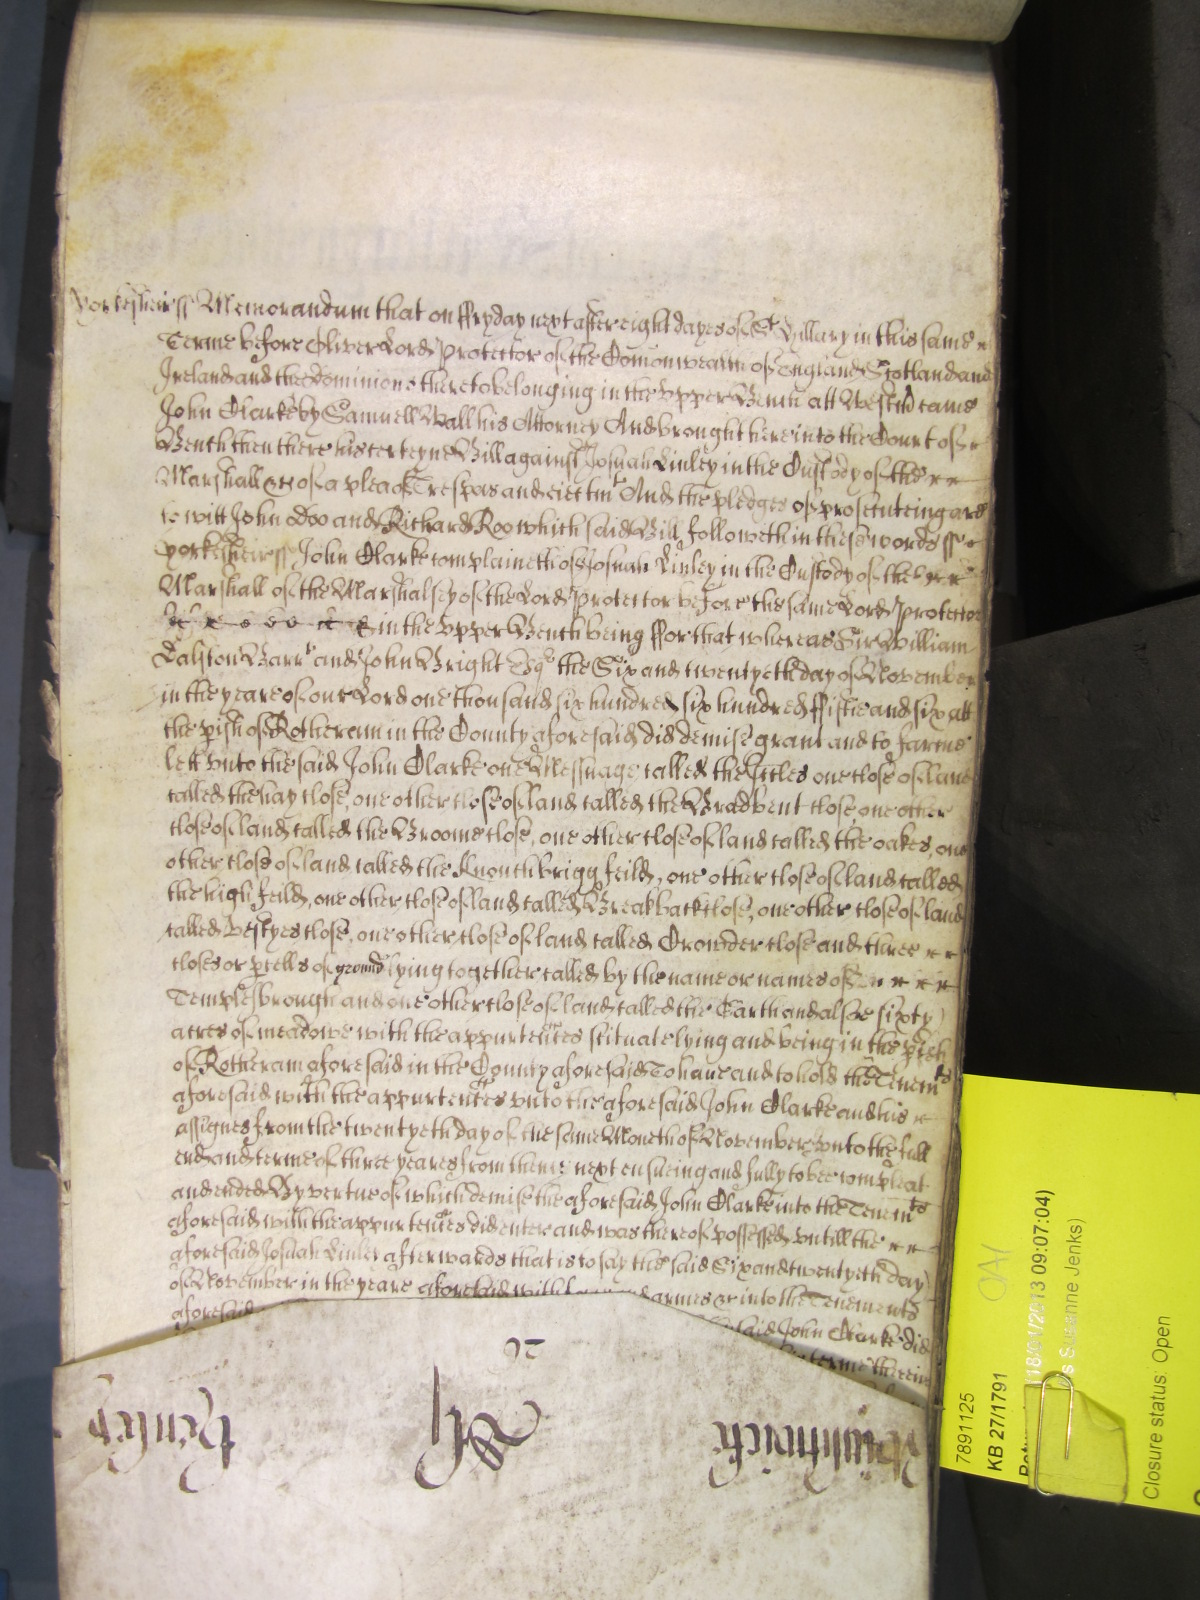 Yorkesheir ss Memorandum that on ffryday next after eight dayes of St Hillary in this same
Terme before Oliver Lord Protector of the Comonwealth of England Scotland and
Ireland and the dominions thereto belonging in the Upper Bench att Westm came
John Clarke by Samuell Wall his Attorney And brought here into the Court of
Bench then there his certeyne Bill against Josuah Linley in the Custody of the
Marshall &c of a plea of Trespas and eiectmt And the pledges of prosecuteing are
to witt John Doo and Richard Roo which said Bill followeth in these words ss
Yorkesheir ss John Clarke complaineth of Josuah Linley in the Custody of the
Marshall of the Marshalsey of the Lord Protector before the same Lord Protector
in the Upper Bench being ffor that whereas Sir William
Dalston Barrt and John Bright Esqr the Six and twentyeth day of November
in the yeare of our Lord one thousand six hundred six hundred ffiftie and six att
the pish of Rotheram in the County aforesaid did demise grant and to farme
lett unto the said John Clarke one Messuage called the Ickles one close of land
called the hay close, one other close of land called the Bradbent close, one other
close of land called the Broome close, one other close of land called the oakes, one
other close of land called the Knouchbrigg feild, one other close of land called
the high feild, one other close of land called Breakback close, one other close of land
called vestyes close, one other close of land called Crowder close and three
closes or pcells of ground lying together called by the name or names of
Templesbrough and one other close of land called the Carth and alsoe sixty
acres of meadowe with the appurtences scituate lying and being in the pish
of Rotheram aforesaid in the County aforesaid To have and to hold the Tenemts
aforesaid with the appurtences unto the aforesaid John Clarke and his
assignes from the twentyeth day of the same Moneth of November unto the full
end and terme of three yeares from thence next ensueing and fully to bee compleat
and ended By vertue of which demise the aforesaid John Clarke into the Tenemts
aforesaid with the appurtences did enter and was thereof possessed untill the
aforesaid Josuah Linley afterwards that is to say the said Six and twentyeth day
of November in the yeare aforesaid with armes &c into the Tenements
aforesaid said John Clarke did
terme therein
20
7891125
KB 27/1791
18/01/2013 09:07:04)
Susanne Jenks)
Closure status: Open